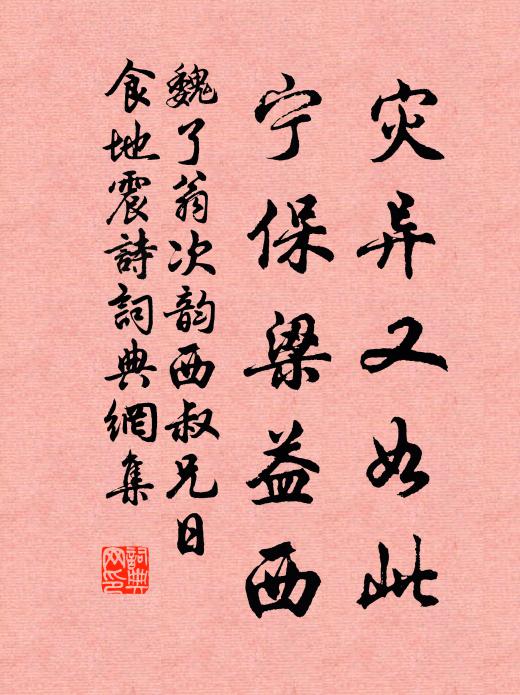 灾异又如此
宁保梁益西
魏了翁次韵西叔兄日
食地震詩詞典網集
詞典网印